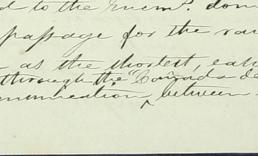 d to the Enemy. dom
passage for the
as the shortest,
through the "
munication, between